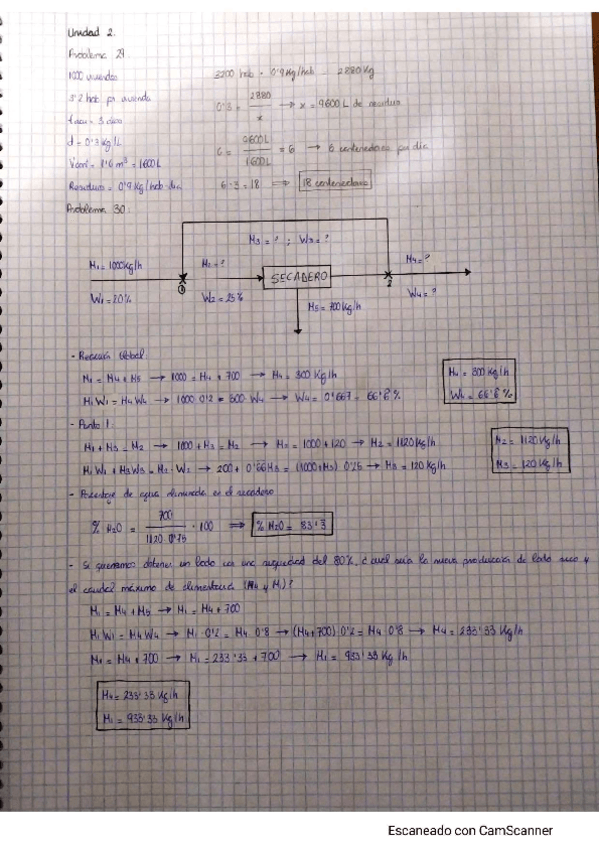 Unidad 2.
Problema 29.
1000 viviendas
3200 hab · 0'9 Kg/hab = 2880 Kg
3'2 hab por vivienda
0'3 = 2880 / x → x = 9600 L de residuo
= 3 días
d = 0'3 Kg/L
6 = 9600L / 1600L = 6 → 6 contenedores por día
Vcont = 1'6 m³ = 1600L
Residuos = 0'9 Kg/hab·día
6·3 = 18 ⇒ 18 contenedores
Problema 30:
M3 = ? ; W3 = ?
M1 = 1000Kg/h
M2 = ?
SECADERO
M4 = ?
1
2
W1 = 20%
W2 = 25%
W4 = ?
M5 = 700Kg/h
- Reacción Global:
M1 = M4 + M5 → 1000 = M4 + 700 → M4 = 300 Kg/h
M4 = 300 Kg/h
M1 W1 = M4 W4 → 1000·0'2 = 300·W4 → W4 = 0'667 = 66'6 %
W4 = 66'6 %
- Punto 1:
M1 + M3 = M2 → 1000 + M3 = M2 → M2 = 1000 + 120 → M2 = 1120Kg/h
M2 = 1120 Kg/h
M1 W1 + M3 W3 = M2 · W2 → 200 + 0'66M3 = (1000+M3) 0'25 → M3 = 120 Kg/h
M3 = 120 Kg/h
- Porcentaje de agua eliminada en el secadero
% H2O = 700 / 1120·0'75 · 100 ⇒ % H2O = 83'3
- Si queremos obtener un lodo con una sequedad del 80%, ¿cuál sería la nueva producción de lodo seco y
el caudal máximo de alimentación (M4 y M1)?
M1 = M4 + M5 → M1 = M4 + 700
M1 W1 = M4 W4 → M1 · 0'2 = M4 · 0'8 → (M4+700) 0'2 = M4 · 0'8 → M4 = 233'33 Kg/h
M1 = M4 + 700 → M1 = 233'33 + 700 → M1 = 933'33 Kg/h
M4 = 233'33 Kg/h
M1 = 933'33 Kg/h
Escaneado con CamScanner